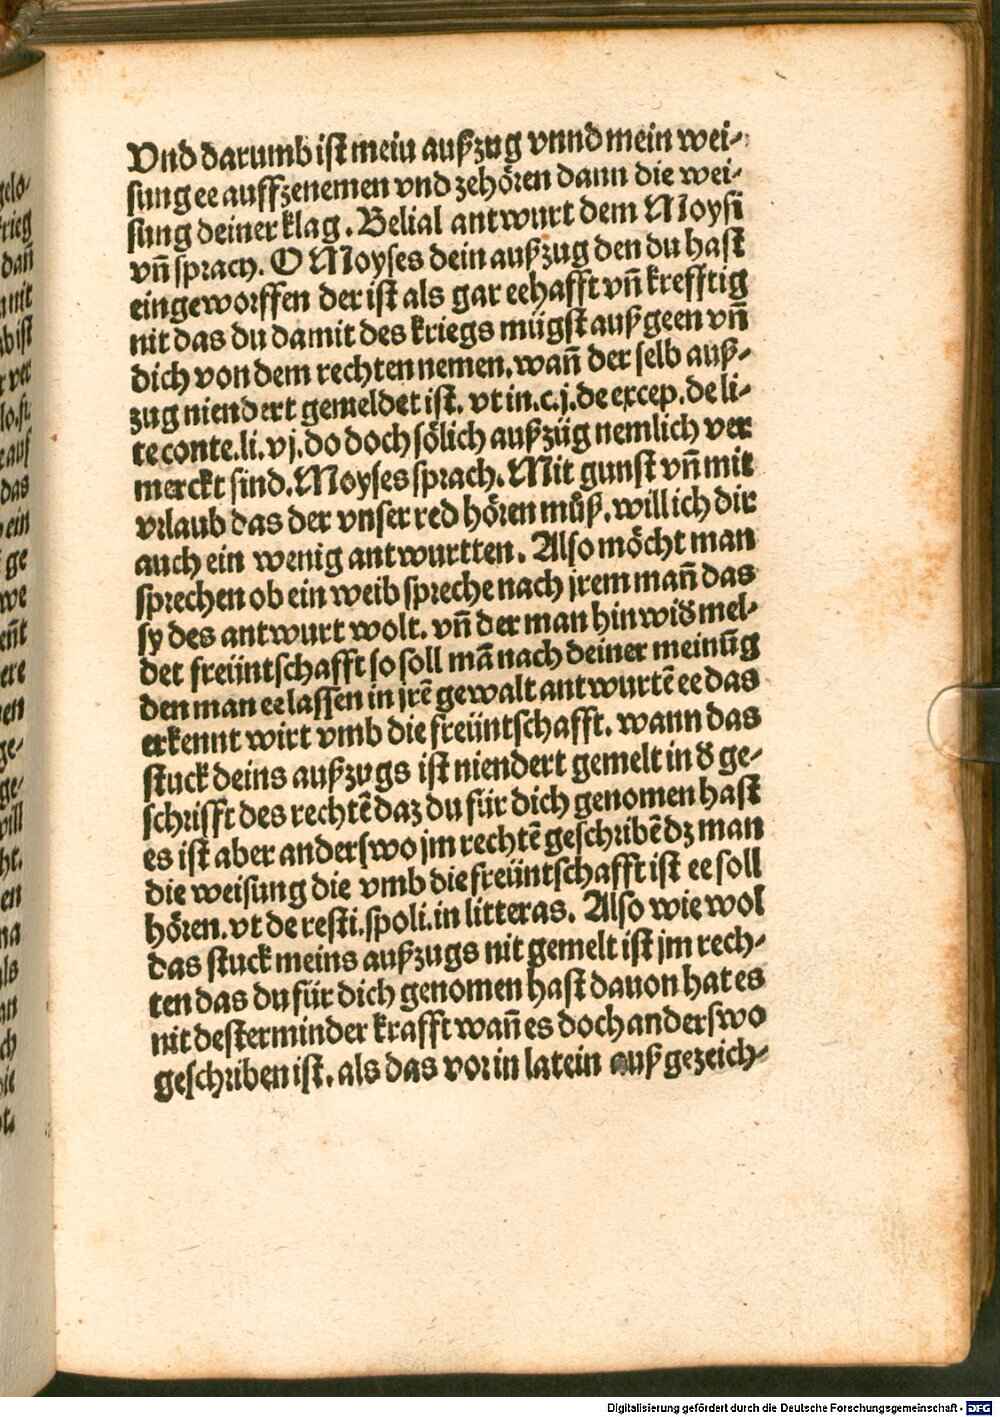 Vnd darumb ist mein außzug vnnd mein wei-
sung ee auffzenemen vnd zehören dann die wei-
sung deiner klag. Belial antwurt dem Moysi
vñ sprach. O Moyses dein außzug den du hast
eingeworffen der ist als gar eehafft vñ krefftig
nit das du damit des kriegs mügst auß geen vñ
dich von dem rechten nemen. wañ der selb auß-
zug niendert gemeldet ist. vt in .c. j. de excep. de li-
te conte. li. vj. do doch sölich außzüg nemlich ver
merckt sind. Moyses sprach. Mit gunst vñ mit
vrlaub das der vnser red hören müß. will ich dir
auch ein wenig antwurtten. Also möcht man
sprechen ob ein weib spreche nach jrem mañ das
sy des antwurt wolt. vñ der man hin wid̕ mel-
det freüntschafft so soll mā nach deiner meinūg
den man ee lassen in jrē gewalt antwurtē ee das
erkennt wirt vmb die freüntschafft. wann das
stuck deins außzugs ist niendert gemelt in d̕ ge-
schrifft des rechtē daz du für dich genomen hast
es ist aber anderswo jm rechtē geschribē dz man
die weisung die vmb die freüntschafft ist ee soll
hören. vt de resti. spoli. in litteras. Also wie wol
das stuck meins außzugs nit gemelt ist jm rech-
ten das du für dich genomen hast dauon hat es
nit desterminder krafft wañ es doch anderswo
geschriben ist. als das vor in latein auß gezeich-
Digitalisierung gefördert durch die Deutsche Forschungsgemeinschaft - DFG